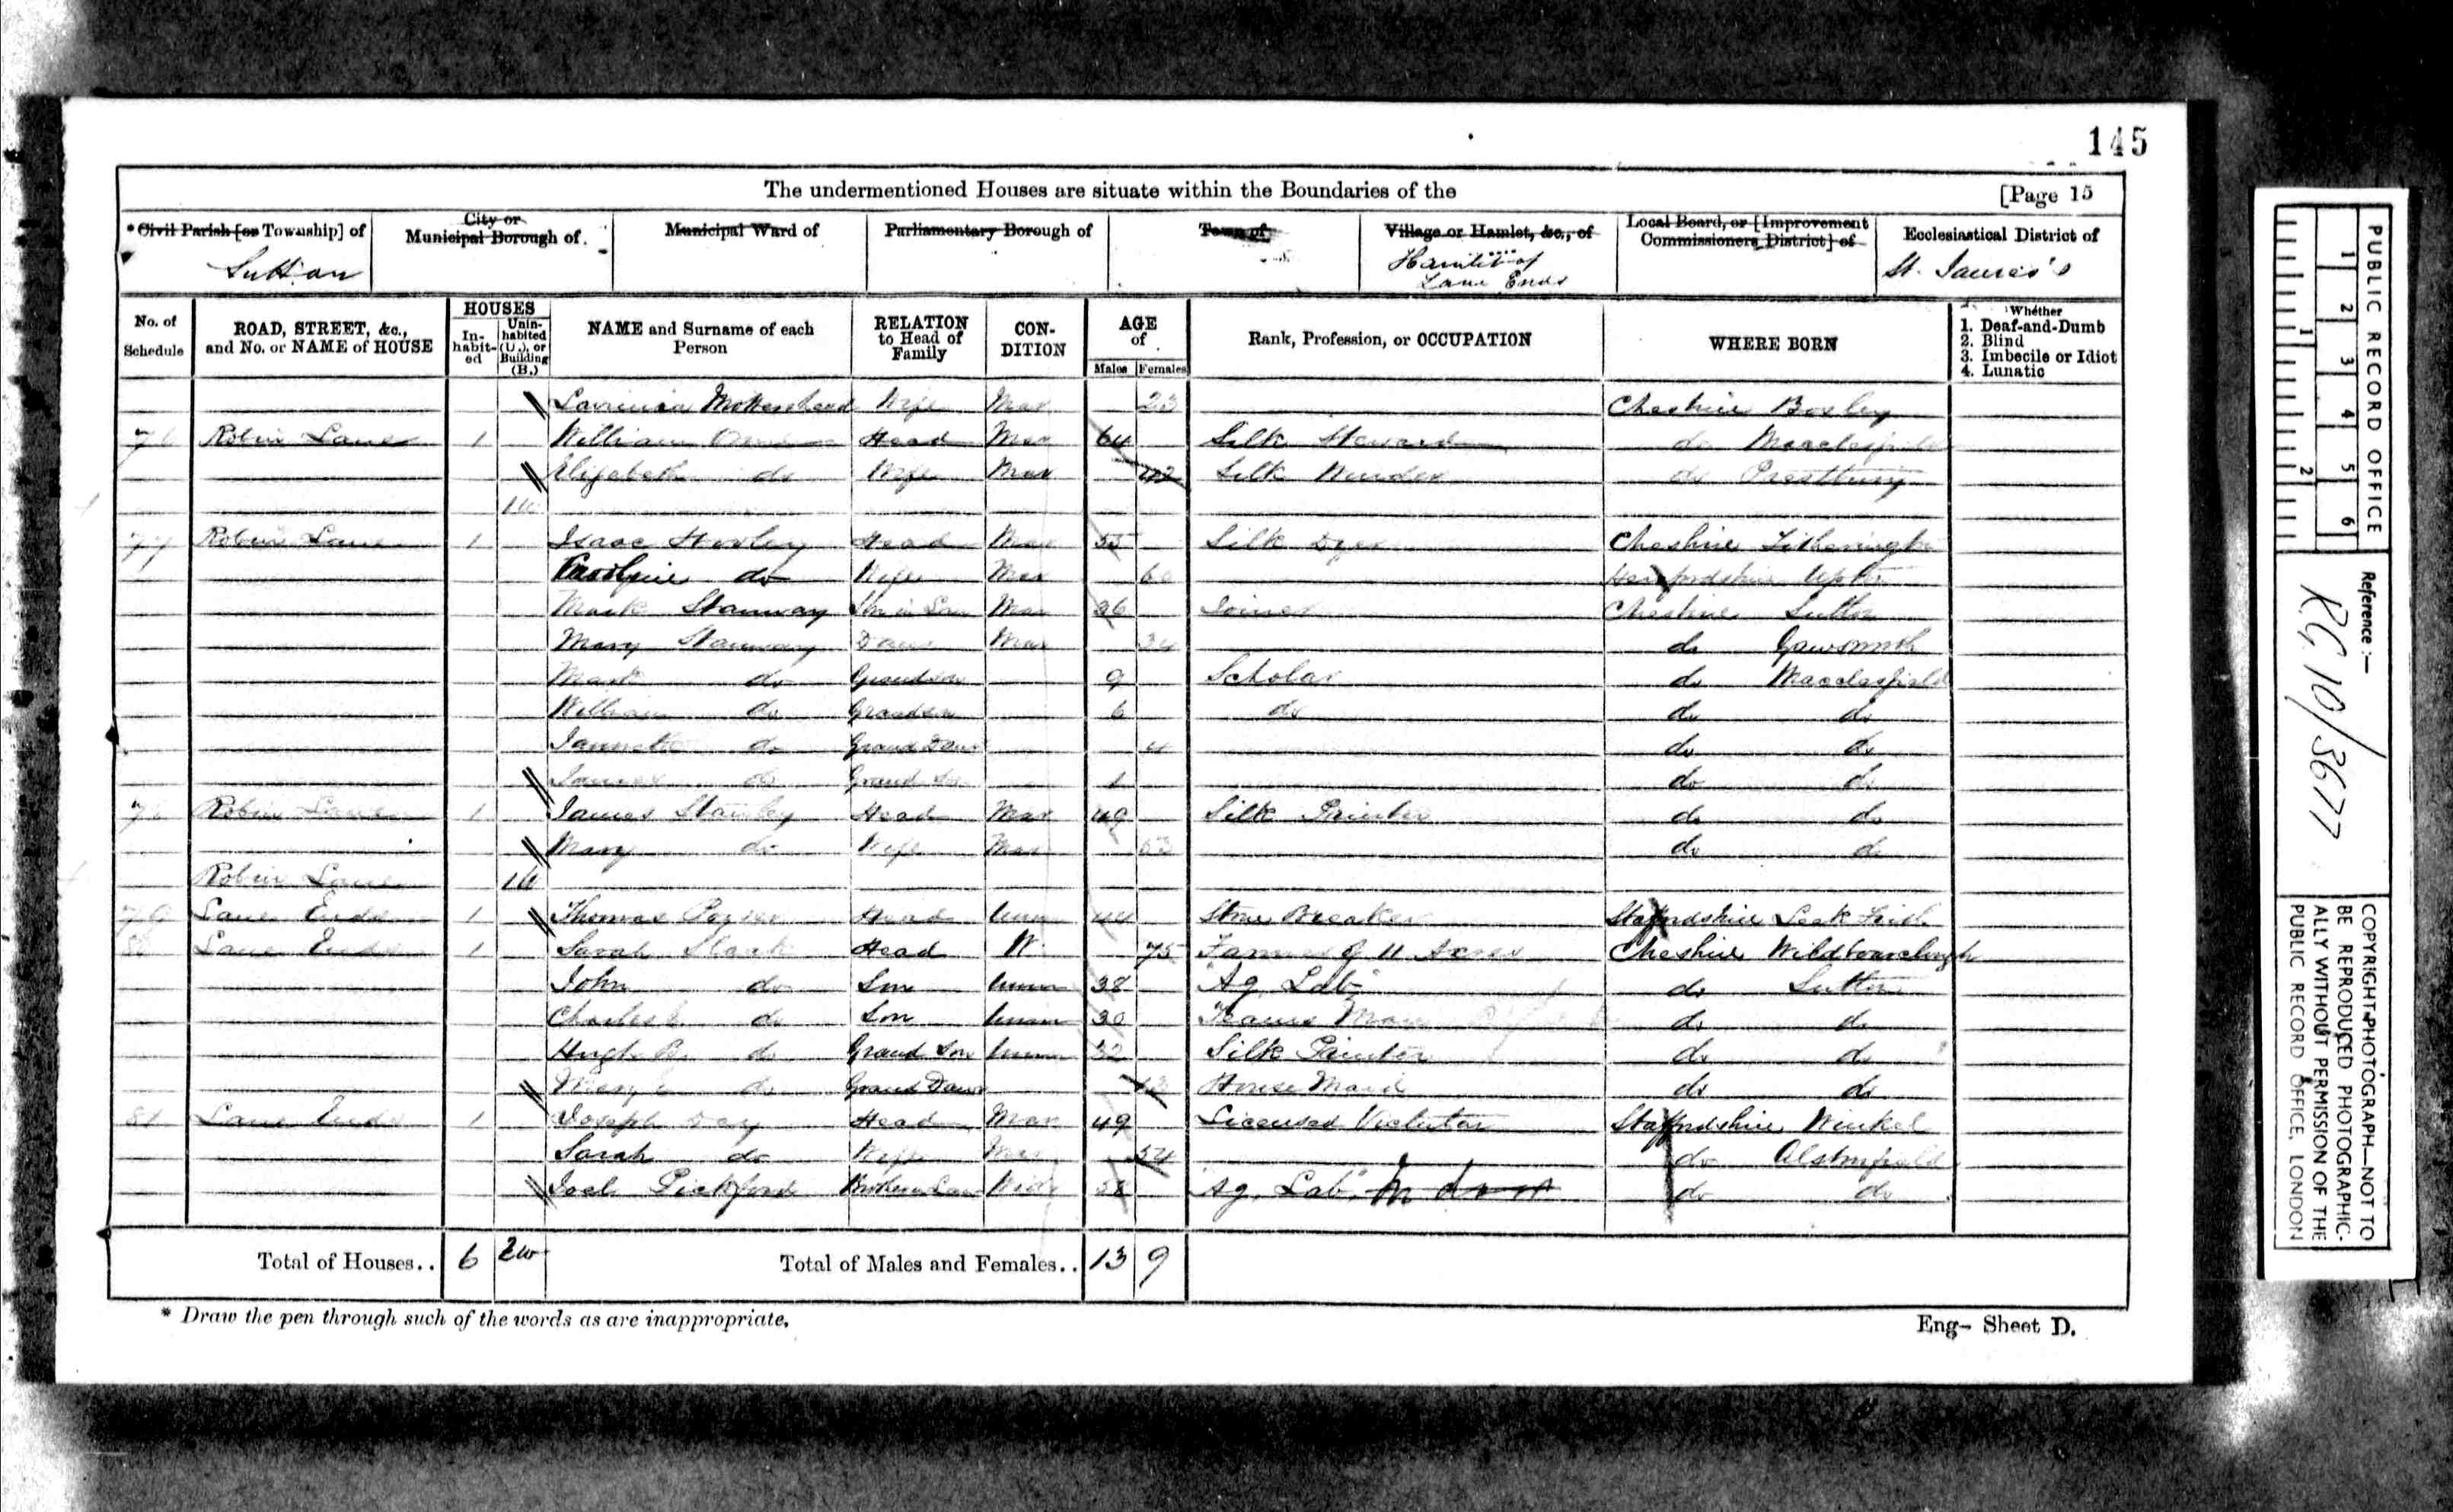 145
The undermentioned Houses are situate within the Boundaries of the [Page 15
* Civil Parish [or Township] of
Sutton
City or Municipal Borough of
Municipal Ward of
Parliamentary Borough of
Town of
Village or Hamlet, &c., of
Hamlet of Lane Ends
Local Board, or [Improvement Commissioners District] of
Ecclesiastical District of
St. James's
No. of Schedule
ROAD, STREET, &c., and No. or NAME of HOUSE
HOUSES
In-habit-ed
Unin-habited (U.), or Building (B.)
NAME and Surname of each Person
RELATION to Head of Family
CON-DITION
AGE of
Males Females
Rank, Profession, or OCCUPATION
WHERE BORN
Whether
1. Deaf-and-Dumb
2. Blind
3. Imbecile or Idiot
4. Lunatic
Wife Mar 23 Cheshire Bosley
76 Robin Lane 1 William Head Mar 64 Silk Steward do Macclesfield
Elizabeth do Wife Mar Silk Winder do Prestbury
77 Robin Lane 1 Isaac Head Mar 55 Silk Dyer Cheshire
Caroline do Wife Mar 60 Upton
Mark Stanway Son in Law Mar 36 Joiner Cheshire Sutton
Mary Stanway Daur Mar 34 do Gawsworth
Mark do Grandson 9 Scholar do Macclesfield
William do Grandson 6 do do do
do Grand Daur 4 do do
James do Grand Son 1 do do
78 Robin Lane 1 James Stanley Head Mar 49 Silk Painter do do
Mary do Wife Mar 53 do do
Robin Lane 1U
79 Lane Ends 1 Thomas Head Unm 44 Stone Breaker Staffordshire Leek Frith
80 Lane Ends 1 Sarah Head W 75 Farmer of 11 Acres Cheshire Wildboarclough
John do Son Unm 38 "Ag. Lab" do Sutton
Charles do Son Unm 30 do do
Hugh B. do Grand Son Unm Silk Painter do do
Mary E do Grand Daur House Maid do do
81 Lane Ends 1 Joseph Day Head Mar 49 Licensed Victuler Staffordshire Winkel
Sarah do Wife Mar 54 do Alstonfield
Joel Pickford Brother in Law 58 "Ag. Lab" do do
Total of Houses.. 6 2u Total of Males and Females.. 13 9
* Draw the pen through such of the words as are inappropriate.
Eng- Sheet D.
PUBLIC RECORD OFFICE
1 2 3 4 5 6
1 2
Reference:-
RG 10/3677
COPYRIGHT PHOTOGRAPH-NOT TO
BE REPRODUCED PHOTOGRAPHIC-
ALLY WITHOUT PERMISSION OF THE
PUBLIC RECORD OFFICE, LONDON